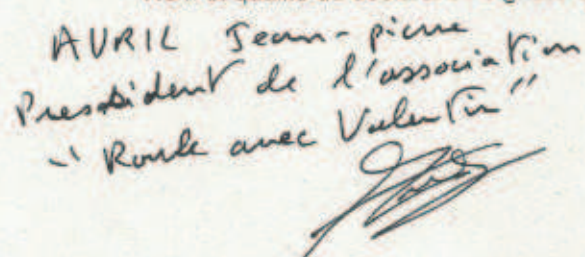 AVRIL Jean-pierre
Président de l'association
"Roule avec Valentin"